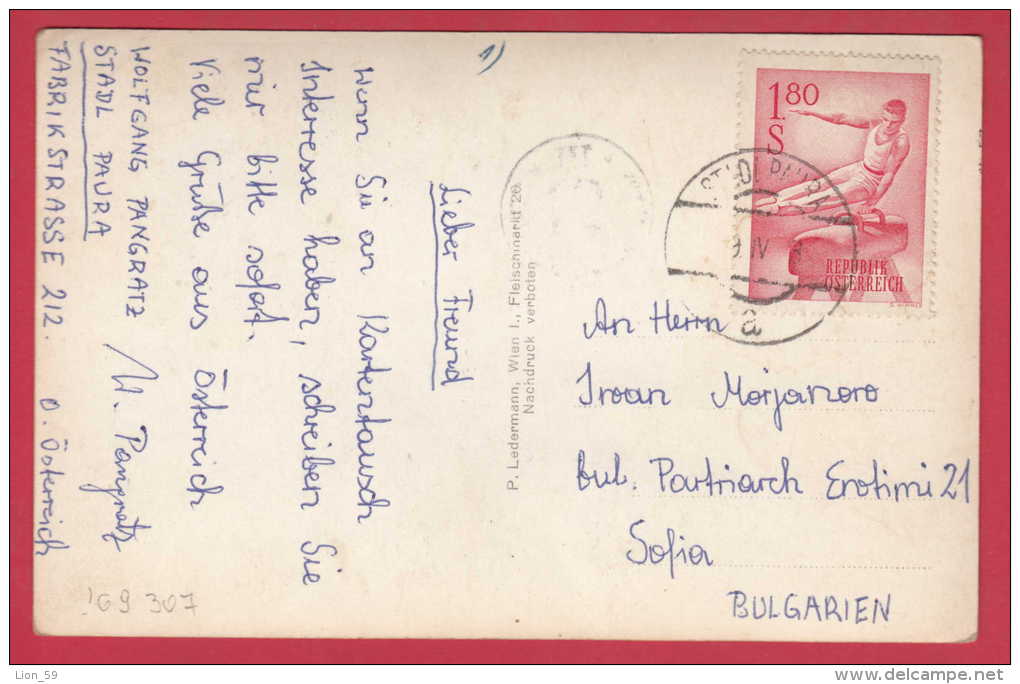 1)
Lieber Freund
Wenn Sie an Kartentausch
Interresse haben, schreiben Sie
mir bitte sofort.
Viele Grüße aus Österreich
W. Pangratz
WOLFGANG PANGRATZ
STADL PAURA
FABRIKSTRASSE 212. O.Österreich
P. Ledermann, Wien I., Fleischmarkt 20.
Nachdruck verboten
1 80
S
REPUBLIK
ÖSTERREICH
STADL PAURA
IV
a
An Herrn
Ivan Morjanovo
bul. Partriarch Erotimi 21
Sofia
BULGARIEN
169 307
Lion_59
delcampe.net